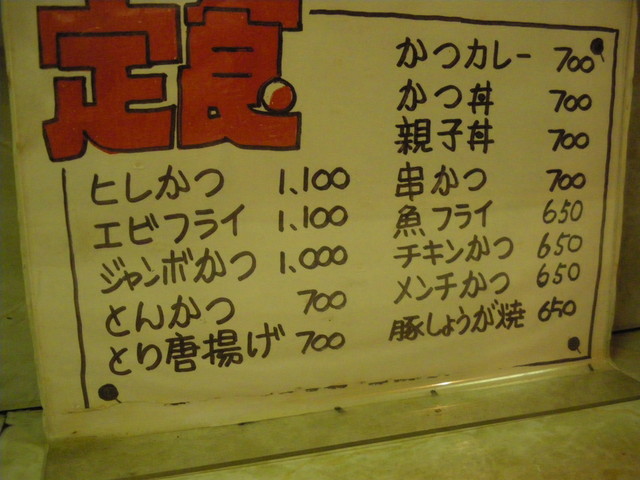 定食
ヒレかつ 1,100
エビフライ 1,100
ジャンボかつ 1,000
とんかつ 700
とり唐揚げ 700
かつカレー 700
かつ丼 700
親子丼 700
串かつ 700
魚フライ 650
チキンかつ 650
メンチかつ 650
豚しょうが焼 650